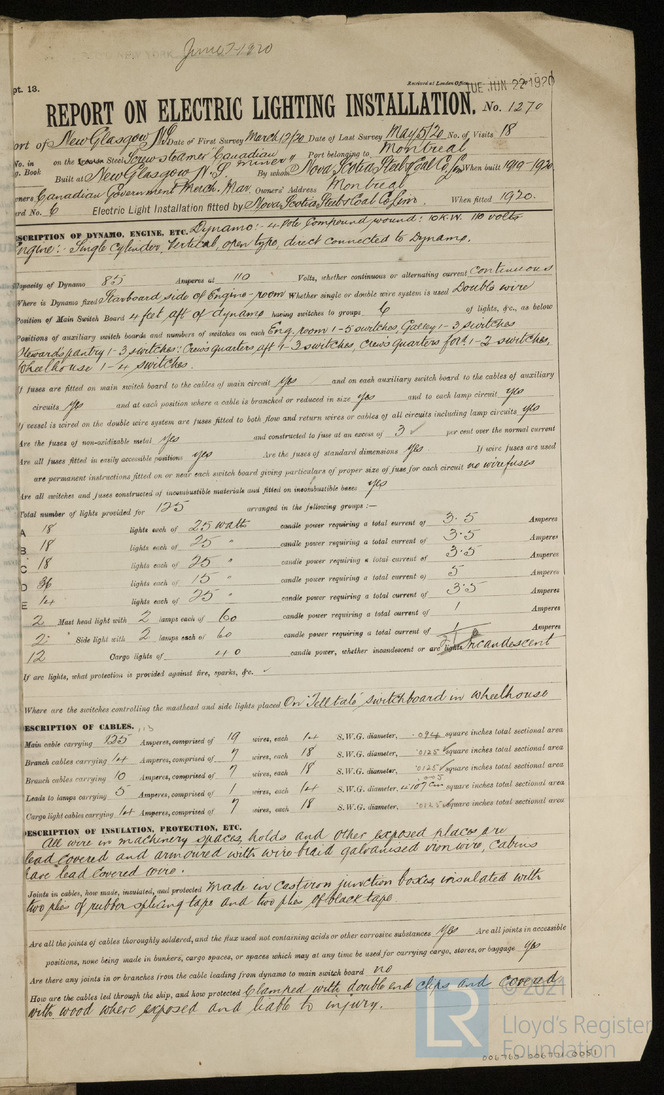 June 7-1920
pt. 13.
Received at London Office
TUE JUN 22 1920
REPORT ON ELECTRIC LIGHTING INSTALLATION. No. 1270
ort of New Glasgow N.S. Date of First Survey March 12/20 Date of Last Survey May 5/20 No. of Visits 18
No. in on the Steel Screw steamer "Canadian Miner" Port belonging to Montreal
g. Book Built at New Glasgow N.S. By whom Nova Scotia Steel & Coal Co Lim When built 1919-1920
ners Canadian Government Merch. Mar. Owners' Address Montreal
ard No. 6 Electric Light Installation fitted by Nova Scotia Steel & Coal Co Lim. When fitted 1920.
SCRIPTION OF DYNAMO, ENGINE, ETC. Dynamo:- 4 Pole Compound wound: 10 K.W. 110 volts
Engine:- Single Cylinder, Vertical, open type, direct connected to Dynamo.
Capacity of Dynamo 85 Amperes at 110 Volts, whether continuous or alternating current Continuous
Where is Dynamo fixed Starboard side of Engine-room Whether single or double wire system is used Double wire
Position of Main Switch Board 4 feet aft of dynamo having switches to groups 6 of lights, &c., as below
Positions of auxiliary switch boards and numbers of switches on each Eng. room 1-5 switches, Galley 1-3 switches
Stewards pantry 1-3 switches: Crew's quarters aft 1-3 switches, Crew's quarters for'd 1-2 switches,
Wheelhouse 1-4 switches.
If fuses are fitted on main switch board to the cables of main circuit yes and on each auxiliary switch board to the cables of auxiliary
circuits yes and at each position where a cable is branched or reduced in size yes and to each lamp circuit yes
If vessel is wired on the double wire system are fuses fitted to both flow and return wires or cables of all circuits including lamp circuits yes
Are the fuses of non-oxidizable metal yes and constructed to fuse at an excess of 3 ✓ per cent over the normal current
Are all fuses fitted in easily accessible positions yes Are the fuses of standard dimensions yes If wire fuses are used
are permanent instructions fitted on or near each switch board giving particulars of proper size of fuse for each circuit no wire fuses
Are all switches and fuses constructed of incombustible materials and fitted on incombustible bases yes
Total number of lights provided for 125 arranged in the following groups :—
A 18 lights each of 25 watts candle power requiring a total current of 3.5 Amperes
B 18 lights each of 25 " candle power requiring a total current of 3.5 Amperes
C 18 lights each of 25 " candle power requiring a total current of 3.5 Amperes
D 36 lights each of 15 " candle power requiring a total current of 5 Amperes
E 14 lights each of 25 " candle power requiring a total current of 3.5 Amperes
2 Mast head light with 2 lamps each of 60 candle power requiring a total current of 1 Amperes
2 Side light with 2 lamps each of 60 candle power requiring a total current of 1 Amperes
12 Cargo lights of 40 candle power, whether incandescent or arc lights Incandescent
If arc lights, what protection is provided against fire, sparks, &c.
Where are the switches controlling the masthead and side lights placed On "Tell tale" switchboard in wheelhouse
DESCRIPTION OF CABLES.
Main cable carrying 125 Amperes, comprised of 19 wires, each 14 S.W.G. diameter, .094 square inches total sectional area
Branch cables carrying 14 Amperes, comprised of 7 wires, each 18 S.W.G. diameter, .0125 square inches total sectional area
Branch cables carrying 10 Amperes, comprised of 7 wires, each 18 S.W.G. diameter, .0125 square inches total sectional area
Leads to lamps carrying 5 Amperes, comprised of 1 wires, each 14 S.W.G. diameter, .005 square inches total sectional area
Cargo light cables carrying 14 Amperes, comprised of 7 wires, each 18 S.W.G. diameter, .0125 square inches total sectional area
DESCRIPTION OF INSULATION, PROTECTION, ETC.
All wire in machinery spaces, holds and other exposed places are
lead covered and armoured with wire braid galvanised iron wire, cabins
have lead covered wire.
Joints in cables, how made, insulated, and protected Made in cast iron junction boxes, insulated with
two plies of rubber splicing tape and two plies of black tape
Are all the joints of cables thoroughly soldered, and the flux used not containing acids or other corrosive substances yes Are all joints in accessible
positions, none being made in bunkers, cargo spaces, or spaces which may at any time be used for carrying cargo, stores, or baggage yes
Are there any joints in or branches from the cable leading from dynamo to main switch board no
How are the cables led through the ship, and how protected Clamped with double end clips and covered
with wood where exposed and liable to injury.
© 2021
LR Lloyd's Register
Foundation